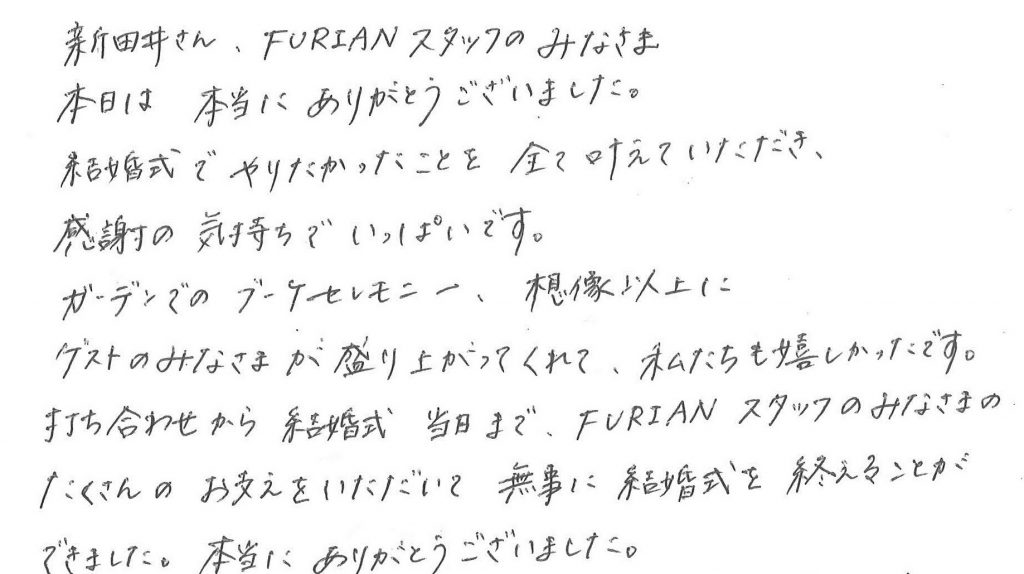 新田井さん、FURIANスタッフのみなさま
本日は 本当に ありがとうございました。
結婚式で やりたかったことを 全て叶えていただき、
感謝の 気持ちで いっぱいです。
ガーデンでの ブーケセレモニー、想像以上に
ゲストのみなさまが 盛り上がってくれて、私たちも嬉しかったです。
打ち合わせから 結婚式 当日まで、FURIANスタッフのみなさまの
たくさんの お支えをいただいて 無事に 結婚式を 終えることが
できました。本当に ありがとうございました。